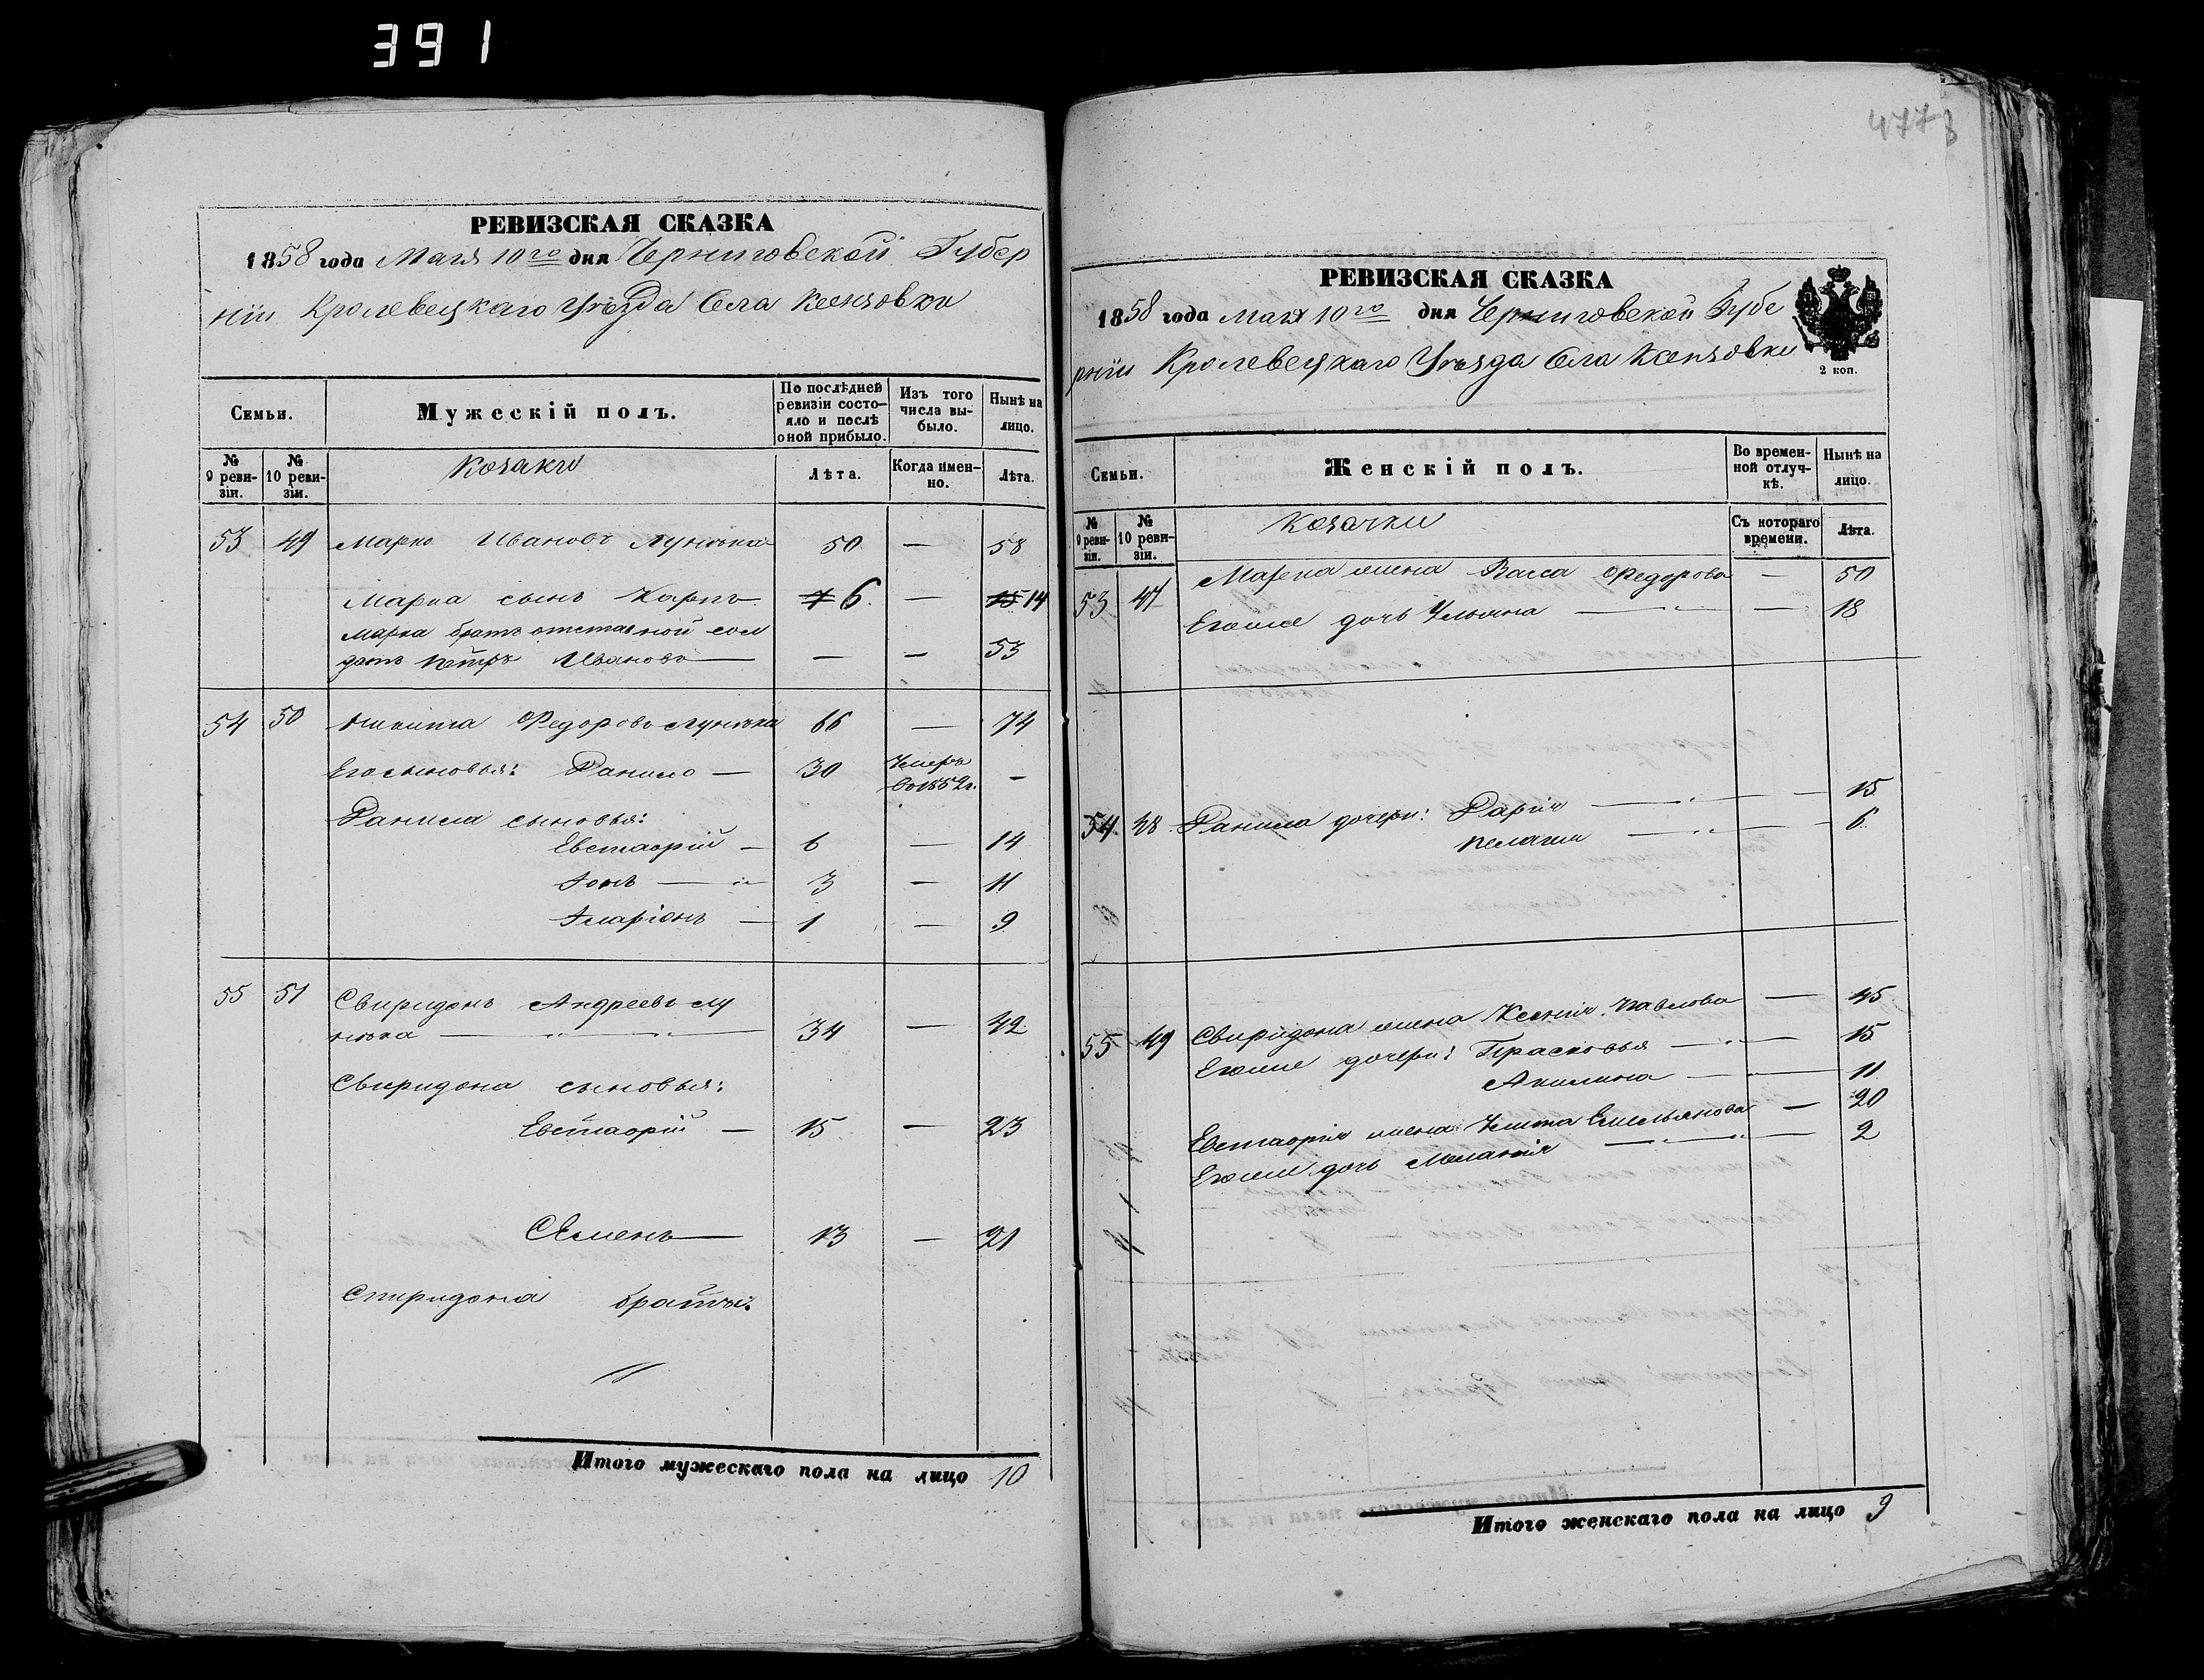 391
477
РЕВИЗСКАЯ СКАЗКА
1858 года Мая 10го дня Черниговской Губер
ніи Кролевецкаго Уѣзда Села
Семьи.
Мужескій полъ.
По послѣдней ревизіи состояло и послѣ оной прибыло.
Изъ того числа выбыло.
Нынѣ на лицо.
№ 9 ревизіи.
№ 10 ревизіи.
Козаки
Лѣта.
Когда именно.
Лѣта.
53 49 Марко Ивановъ 50 — 58
Марка сынъ Карпъ 7 6. — 15 14
Марка братъ отставной сол
датъ Петръ Ивановъ — — — 53
54 50 Никита Федоровъ 66 — 74
Его сыновья: Данило — 30 Умеръ въ 1852г. —
Данила сыновья:
Евстафій — 6 — 14
Іонъ — 3 — 11
Іларіонъ — 1 — 9
55 51 Свиридонъ Андреевъ Лу
34 — 42
Свиридона сыновья:
Евстафій — 15 — 23
Семенъ — 13 — 21
Спиридона братья:
Итого мужескаго пола на лицо 10
РЕВИЗСКАЯ СКАЗКА
1858 года Мая 10го дня Черниговской Губе
рніи Кролевецкаго Уѣзда Села
2 коп.
Семьи.
Женскій полъ.
Во временной отлучкѣ.
Нынѣ на лицо.
№ 9 ревизіи.
№ 10 ревизіи.
Козачки
Съ котораго времени.
Лѣта.
53 47 Марка жена Васса Федорова — 50
Егоже дочь Ульяна — — 18
54 48 Данила дочери: Дарія — — 15
Пелагия — — 6
55 49 Свиридона жена Ксенія Павлова — 45
Егоже дочери: Прасковья — 15
Акилина — 11
Евстафія жена Емельянова — 20
Егоже дочь Меланія — 2
Итого женскаго пола на лицо 9